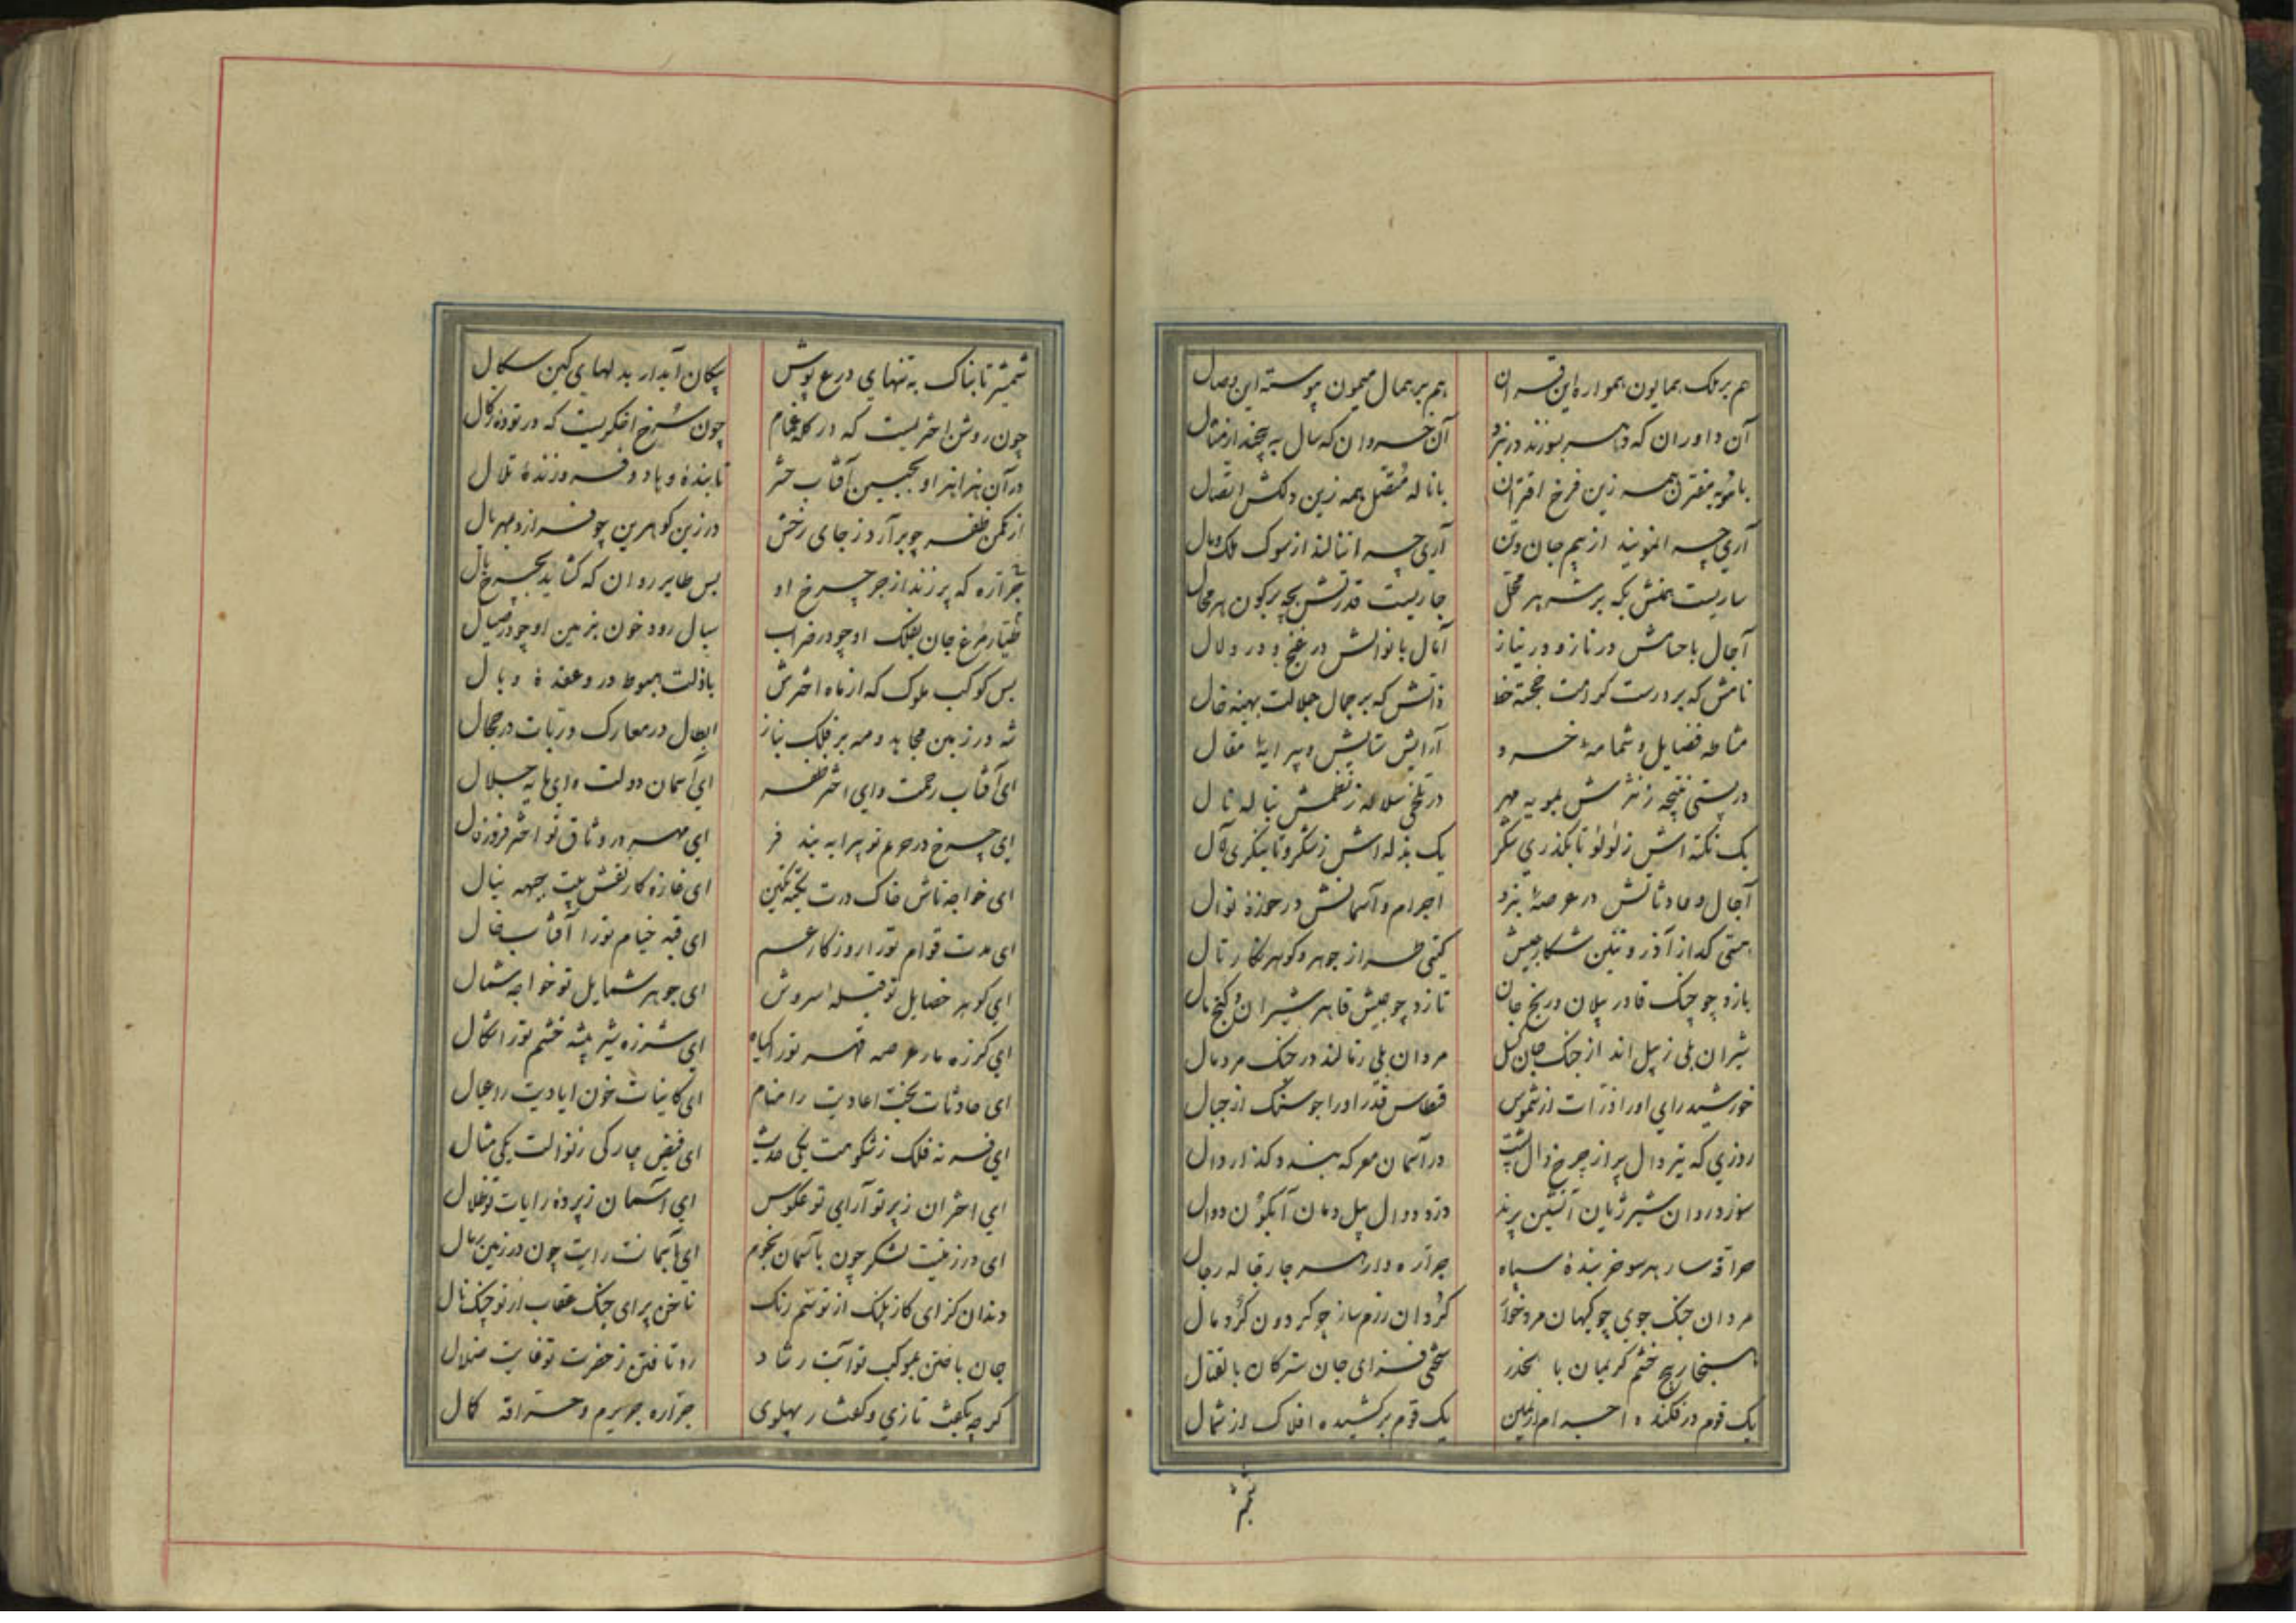 هم بر ملک همایون همواره این قران هم بر همال میمون پیوسته این وصال
آن داوران که بسوزند در نبرد آن خسروان که سال به
با مویه مقترن همه زین فرخ اقتران با ناله متصل همه زین دلکش اتصال
آری چسان نمویند از بیم جان و تن آری چسان ننالند از سوک ملک و مال
ساریست که بر جاریست قدرتش بچه بر کون هر محال
آجال با حسامش در ناز و در نیاز آمال با نوالش در غنج و در دلال
نامش که بر درست کرامت خجسته خط ذاتش که بر جمال جلالت بهینه خال
مشاطه فضایل و شمامهٔ خرد آرایش ستایش و پیرایهٔ مقال
در پستی نتیجه ز نثرش بمویه مهر در تلخی سلاله ز نظمش بناله نال
یک نکته اش ز لؤلؤ تا بگذری شکر یک بذله اش ز شکر و تا بنگری لآل
آجال و حادثاتش در عرصهٔ نبرد اجرام و آسمانش در حوزهٔ نوال
گیتی طراز جوهر و گوهر نگار
یازد چو چنگ قادر پیلان و رنج جان تازد چو جیش قاهر شیران و گنج مال
شیران بلی ز پیل اند از جنگ جان گسل مردان بلی ننالند در جنگ مرد مال
خورشید رای او را ذرات از شموس قسطاس قدر او را جو سنگ از جبال
روزی که تیر دال پر از چرخ دال پشت در آسمان معرکه بندد گذار دال
سوزد روان شیر ژیان آتشین پرند درد دوال پیل دمان آبگون دوال
حراقه سار هر سو سپاه جراره وار هر رجال
مردان جنگ جوی چو کیهان مرد خوار گردان رزم ساز چو گردون گرد مال
خشم گریبان با بحذر فزای جان ترکان بالقتال
یک قوم در فکنده اجرام از یمین یک قوم برکشیده افلاک از شمال
شمشیر
شمشیر تابناک به تنهای درع پوش پیکان آبدار بدلهای کین سگال
چون روشن اختریست که در کلهٔ غمام چون سرخ اخگریست که در تودهٔ زگال
در آن هزاهز او بجبین آفتاب حشر تابنده و باد و فروزندهٔ تلال
از مکمن ظفر چو برآرد ز جای رخش در زین گوهرین چو فرازد مهر یال
جراره که پر زند از جر چرخ او بس طایر روان که گشاید بچرخ بال
طیار مرغ جان بفلک او چو در ضراب سیال رود خون بزمین او چو در صیال
بس کوکب ملوک که از ماه اخترش با ذلت هبوط در و عقدهٔ وبال
شه در زمین مجاهد و مه بر فلک نیاز ابطال در معارک و ربات در حجال
ای آفتاب رحمت و ای اختر ظفر ای آسمان دولت و ای پایه جلال
ای چرخ در حرم تو پیرایه بند فر ای مهر در وثاق تو اختر فروز فال
ای خواجه تاش خاک درت تخته نگین ای غازه کار نقش پیت جبهه ینال
ای مدت قوام تو را روزگار عم ای قبه خیام تو را آفتاب خال
ای گوهر خصایل تو قبله سروش ای جوهر شمایل تو خواجه شمال
ای گرزه مار عرصه قهر تو را گیاه ای شرزه شیر بیشه خشم تو را شکال
ای حادثات بخت اعادیت را منام ای کاینات خوان ایادیت را عیال
ای فر نه فلک ز شکوهت یکی حدیث ای فیض چار رکن ز نوالت یکی مثال
ای اختران ز پرتو آرای تو عکوس ای آسمان ز پردهٔ رایات تو ظلال
ای در زمینت لشکر چون بآسمان نجوم ای بآسمانت رایت چون در زمین رمال
دندان گزای گاز پلنگ از تو شم رنگ ناخن برای چنگ عقاب از تو چنگ نال
جان باختن بموکب تو آیت رشاد رو تافتن ز حضرت تو غایت ضلال
گر چه بگفت تازی و گفتار پهلوی جراره جریرم و حراقه کمال